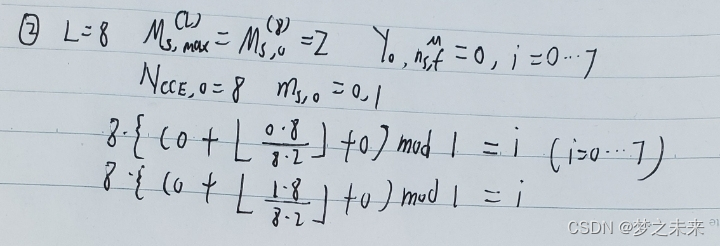 ② L=8 M_{s,max}^{(L)} = M_{s,0}^{(8)} = 2 Y_{0,n_{s,f}^{μ}} = 0, i=0…7
N_{CCE,0} = 8 m_{s,0} = 0,1
8·{ (0 + ⌊ \frac{0·8}{8·2} ⌋ + 0) mod 1 = i (i=0…7)
8·{ (0 + ⌊ \frac{1·8}{8·2} ⌋ + 0) mod 1 = i
CSDN @梦之未来